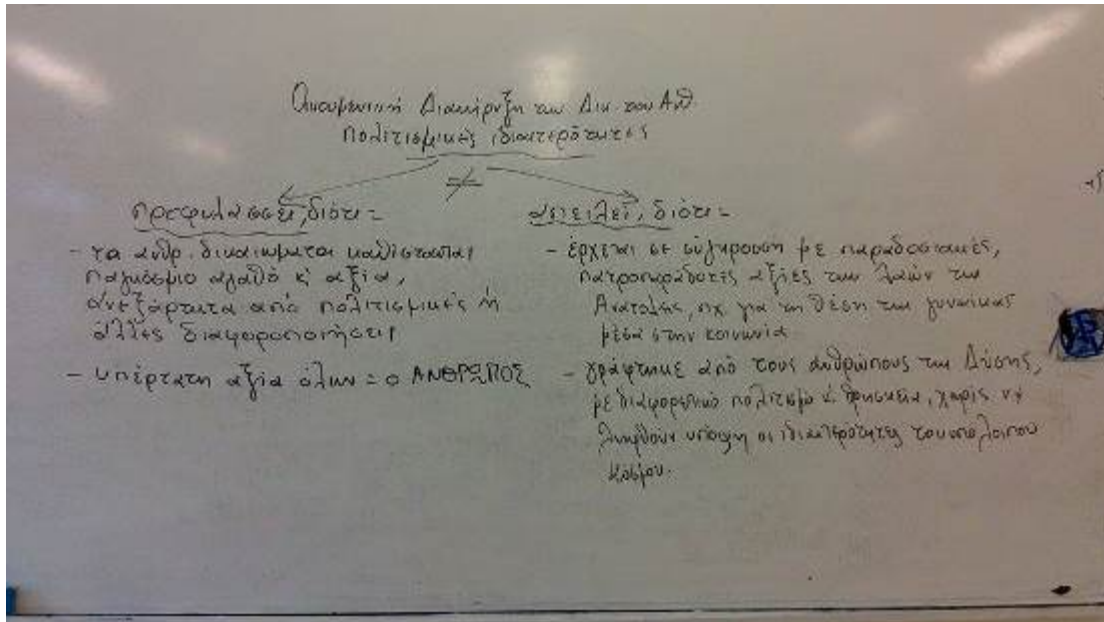 Οικουμενική Διακήρυξη των Δικ. του Ανθ.
πολιτισμικές ιδιαιτερότητες
≠
προφυλάσσει, διότι =
- τα ανθρ. δικαιώματα καθίστανται
παγκόσμιο αγαθό κ' αξία,
ανεξάρτητα από πολιτισμικές ή
άλλες διαφοροποιήσεις
- υπέρτατη αξία όλων = ο ΑΝΘΡΩΠΟΣ
απειλεί, διότι =
- έρχεται σε σύγκρουση με παραδοσιακές,
πατροπαράδοτες αξίες των λαών της
Ανατολής, πχ. για τη θέση της γυναίκας
μέσα στην κοινωνία
- γράφτηκε από τους ανθρώπους της Δύσης,
με διαφορετικό πολιτισμό κ' θρησκεία, χωρίς να
ληφθούν υπόψη οι ιδιαιτερότητες του υπολοίπου
κόσμου.